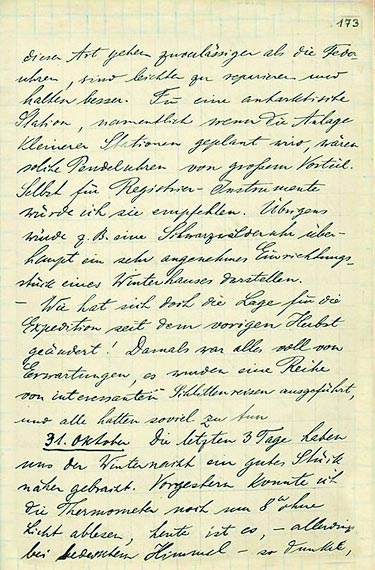 173
dieser Art gehen zuverlässiger als die Feder-
uhren, sind leichter zu reparieren und
halten besser. Für eine antarktische
Station, namentlich wenn die Anlage
kleinerer Stationen geplant wird, wären
solche Pendeluhren von großem Vorteil.
Selbst für Registrier-Instrumente
würde ich sie empfehlen. Übrigens
würde z. B. eine Schwarzwälderuhr über-
haupt ein sehr angenehmes Einrichtungs-
stück eines Winterhauses darstellen.
– Wie hat sich doch die Lage für die
Expedition seit dem vorigen Herbst
geändert! Damals war alles voll von
Erwartungen, es wurden eine Reihe
von interessanten Schlittenreisen ausgeführt,
und alle hatten soviel zu tun
31. Oktober Die letzten 3 Tage haben
uns der Winternacht ein gutes Stück
näher gebracht. Vorgestern konnte ich
die Thermometer noch um 8 ohne
Licht ablesen, heute ist es, – allerdings
bei bedecktem Himmel – so dunkel,